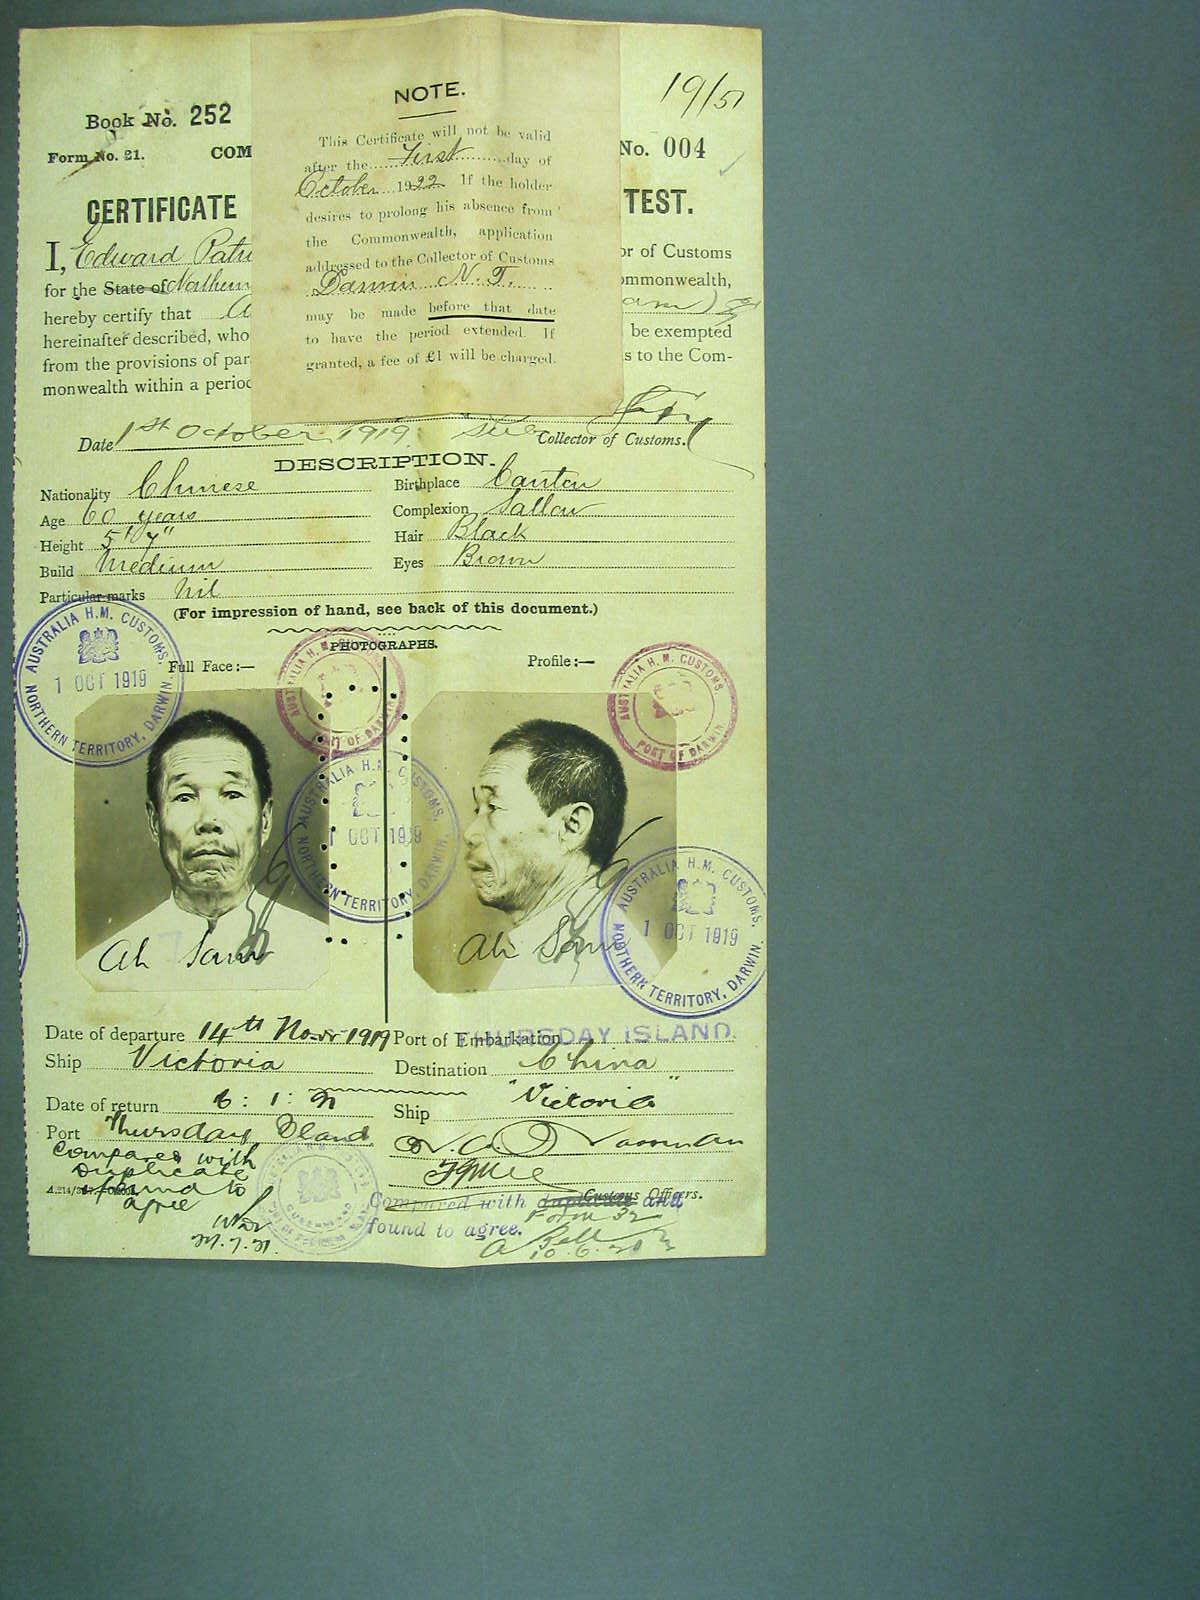 19/51
Book No. 252
Form No. 21. COM
No. 004
CERTIFICATE
TEST.
I, Edward Patri
or of Customs
for the State of Northern
ommonwealth,
hereby certify that
hereinafter described, who
be exempted
from the provisions of par
s to the Com-
monwealth within a period
NOTE.
This Certificate will not be valid
after the First day of
October 1922 If the holder
desires to prolong his absence from
the Commonwealth, application
addressed to the Collector of Customs
Darwin N. T.
may be made before that date
to have the period extended. If
granted, a fee of £1 will be charged.
Date 1st October 1919 Sub Collector of Customs.
DESCRIPTION.
Nationality Chinese Birthplace Canton
Age 60 years Complexion Sallow
Height 5' 7" Hair Black
Build Medium Eyes Brown
Particular marks Nil
(For impression of hand, see back of this document.)
PHOTOGRAPHS.
Full Face:— Profile:—
AUSTRALIA H.M. CUSTOMS. 1 OCT 1919 NORTHERN TERRITORY, DARWIN.
AUSTRALIA H.M. CUSTOMS PORT OF DARWIN
AUSTRALIA H.M. CUSTOMS PORT OF DARWIN
AUSTRALIA H.M. CUSTOMS. 1 OCT 1919 NORTHERN TERRITORY, DARWIN.
AUSTRALIA H.M. CUSTOMS. 1 OCT 1919 NORTHERN TERRITORY, DARWIN.
Ah Sam Ah Sam
Date of departure 14th Novr 1919 Port of Embarkation THURSDAY ISLAND.
Ship Victoria Destination China
Date of return 6 : 1 : 21 Ship "Victoria"
Port Thursday Island
Customs Officers.
Compared with
duplicate
& found to
agree
24.7.21
Compared with duplicate and
Form 32
found to agree.
A Bell
10.6.21